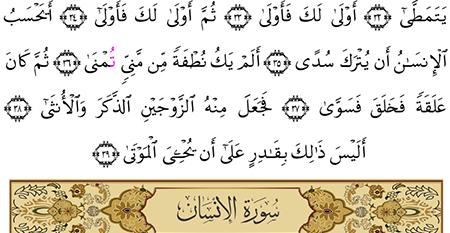 يَتَمَطَّىٰٓ ﴿٣٢﴾ أَوْلَىٰ لَكَ فَأَوْلَىٰ ﴿٣٣﴾ ثُمَّ أَوْلَىٰ لَكَ فَأَوْلَىٰٓ ﴿٣٤﴾ أَيَحْسَبُ
ٱلْإِنسَـٰنُ أَن يُتْرَكَ سُدًى ﴿٣٥﴾ أَلَمْ يَكُ نُطْفَةً مِّن مَّنِىٍّ تُمْنَىٰ ﴿٣٦﴾ ثُمَّ كَانَ
عَلَقَةً فَخَلَقَ فَسَوَّىٰ ﴿٣٧﴾ فَجَعَلَ مِنْهُ ٱلزَّوْجَيْنِ ٱلذَّكَرَ وَٱلْأُنثَىٰٓ ﴿٣٨﴾
أَلَيْسَ ذَٰلِكَ بِقَـٰدِرٍ عَلَىٰٓ أَن يُحْـِۧىَ ٱلْمَوْتَىٰ ﴿٣٩﴾
سُورَةُ الإِنْسَانِ